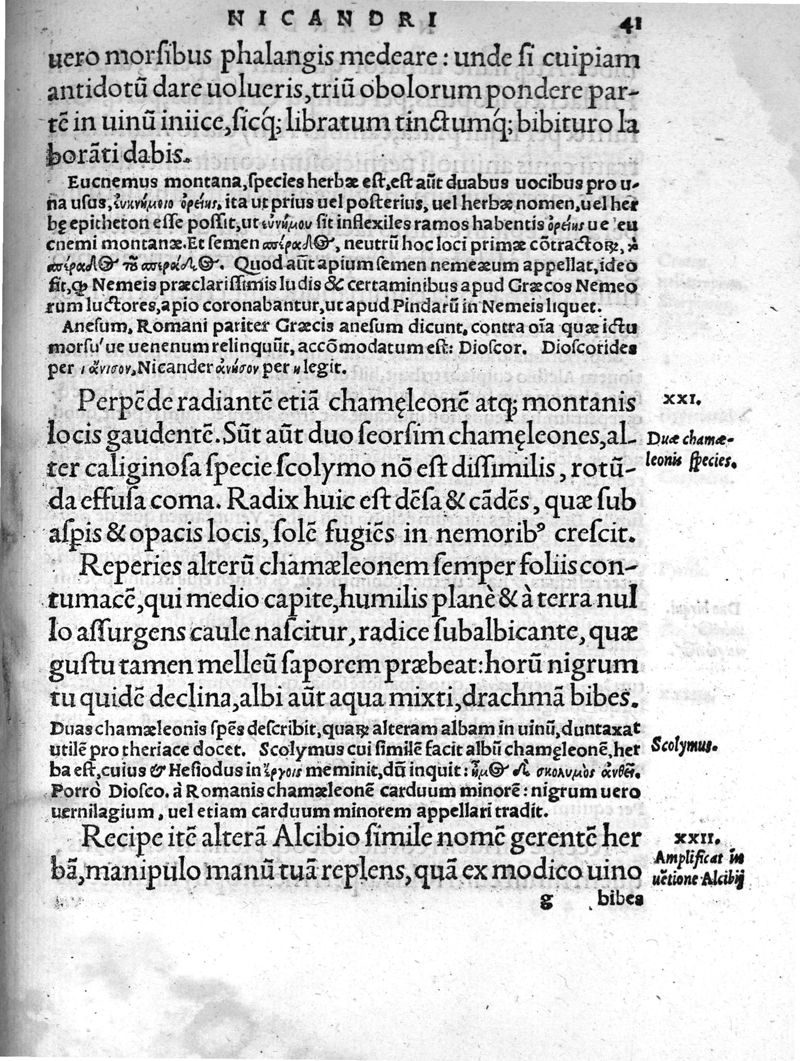 NICANDRI 41
uero morsibus phalangis medeare: unde si cuipiam
antidotū dare uolueris, triū obolorum pondere par-
tē in uinū iniice, sicq; libratum tinctumq; bibituro la
borāti dabis.
Eucnemus montana, species herbæ est, est aūt duabus uocibus pro u-
na usus, ita ut prius uel posterius, uel herbæ nomen, uel her
bę epitheton esse possit, ut sit inflexiles ramos habentis ὀρείης ue eu
cnemi montanæ. Et semen neutrū hoc loci primæ cōtractoꝝ,
Quod aūt apium semen nemeæum appellat, ideo
fit, ꝙ Nemeis præclarissimis ludis & certaminibus apud Græcos Nemeo
rum luctores, apio coronabantur, ut apud Pindarū in Nemeis liquet.
Anesum, Romani pariter Græcis anesum dicunt, contra oīa quæ ictu
morsu'ue uenenum relinquūt, accōmodatum est: Dioscor. Dioscorides
per ι ἄνισον, Nicander ἄνησον per η legit.
Perpēde radiantē etiā chamęleonē atq; montanis XXI.
locis gaudentē. Sūt aūt duo seorsim chamęleones, al- Duæ chamæ-
ter caliginosa specie scolymo nō est dissimilis, rotū- leonis species.
da effusa coma. Radix huic est dēsa & cādēs, quæ sub
aspis & opacis locis, solē fugiēs in nemoribꝰ crescit.
Reperies alterū chamæleonem semper foliis con-
tumacē, qui medio capite, humilis planè & à terra nul
lo assurgens caule nascitur, radice subalbicante, quæ
gustu tamen melleū saporem præbeat: horū nigrum
tu quidē declina, albi aūt aqua mixti, drachmā bibes.
Duas chamæleonis spēs describit, quaꝝ alteram albam in uinū, duntaxat
utilē pro theriace docet. Scolymus cui similē facit albū chamęleonē, her Scolymus.
ba est, cuius & Hesiodus in ἔργοις meminit, dū inquit: ἦμος δὲ σκολυμὸς ἀνθεῖ.
Porrò Diosco. à Romanis chamæleonē carduum minorē: nigrum uero
uernilagium, uel etiam carduum minorem appellari tradit.
Recipe itē alterā Alcibio simile nomē gerentē her XXII.
bā, manipulo manū tuā replens, quā ex modico uino Amplificat in
uētione Alcibij
g bibes